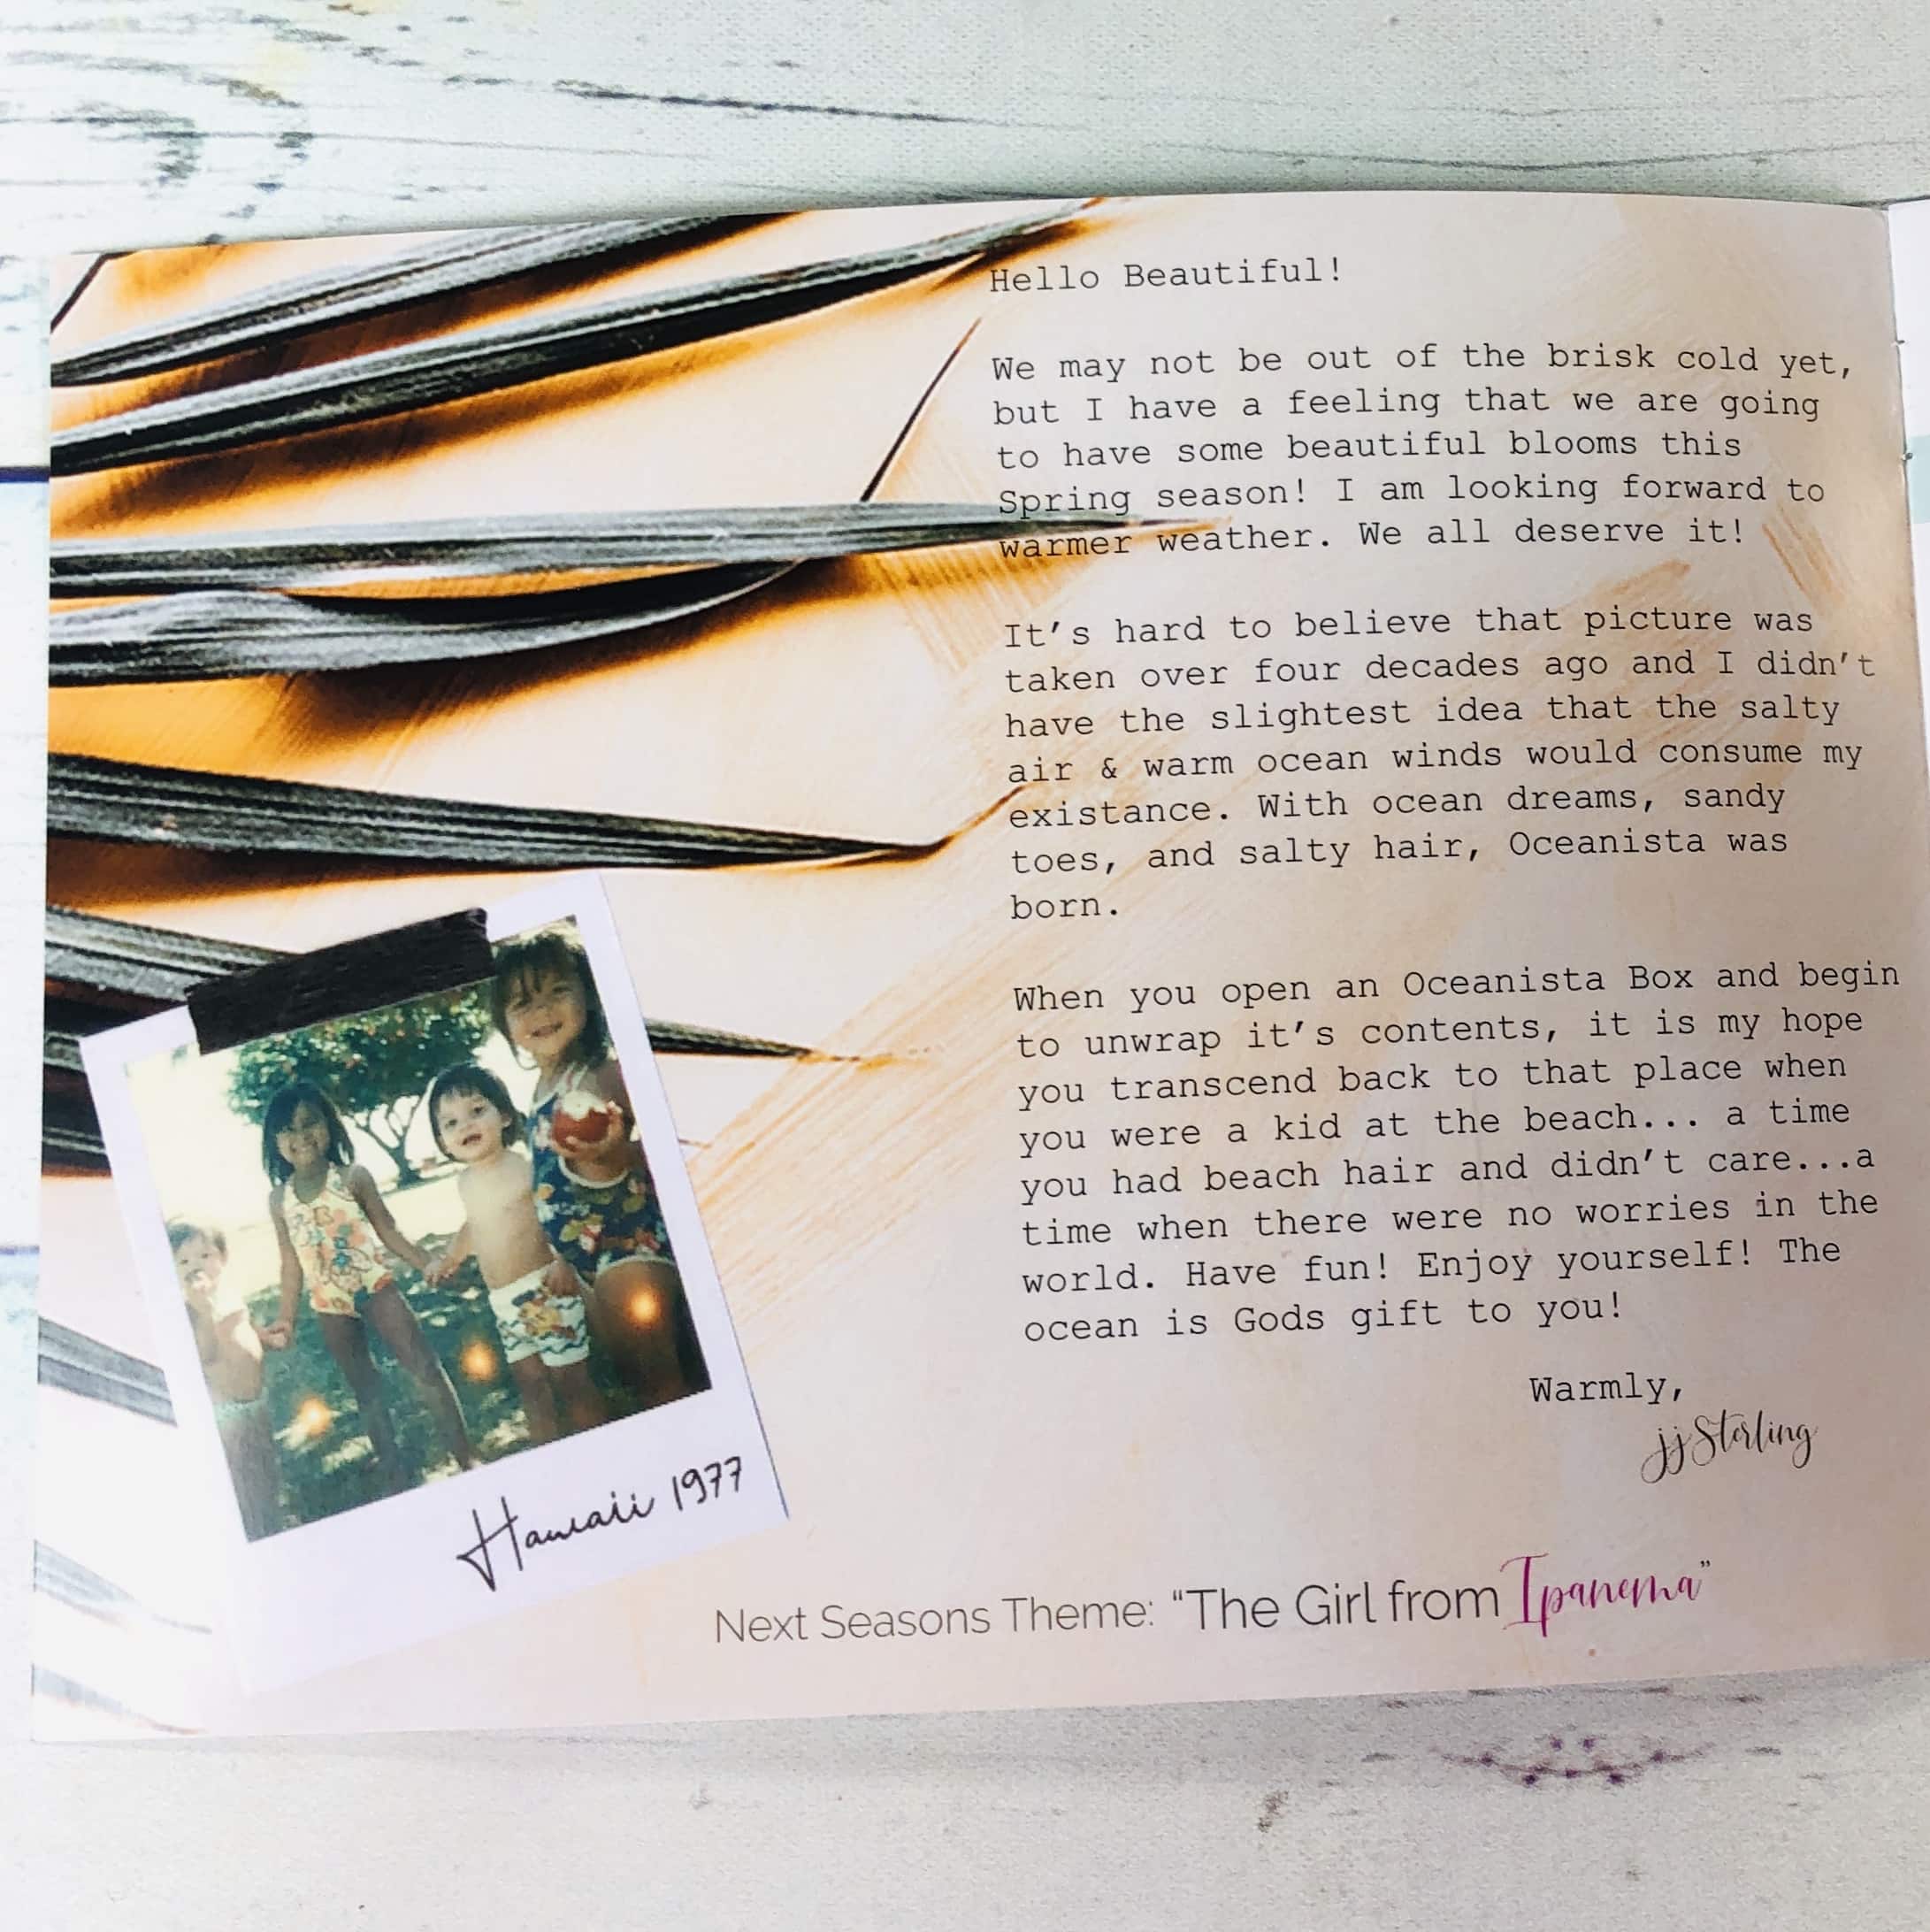 Hello Beautiful!
We may not be out of the brisk cold yet,
but I have a feeling that we are going
to have some beautiful blooms this
Spring season! I am looking forward to
warmer weather. We all deserve it!
It's hard to believe that picture was
taken over four decades ago and I didn't
have the slightest idea that the salty
air & warm ocean winds would consume my
existance. With ocean dreams, sandy
toes, and salty hair, Oceanista was
born.
When you open an Oceanista Box and begin
to unwrap it's contents, it is my hope
you transcend back to that place when
you were a kid at the beach... a time
you had beach hair and didn't care...a
time when there were no worries in the
world. Have fun! Enjoy yourself! The
ocean is Gods gift to you!
Warmly,
jjSterling
Hawaii 1977
Next Seasons Theme: "The Girl from Ipanema"